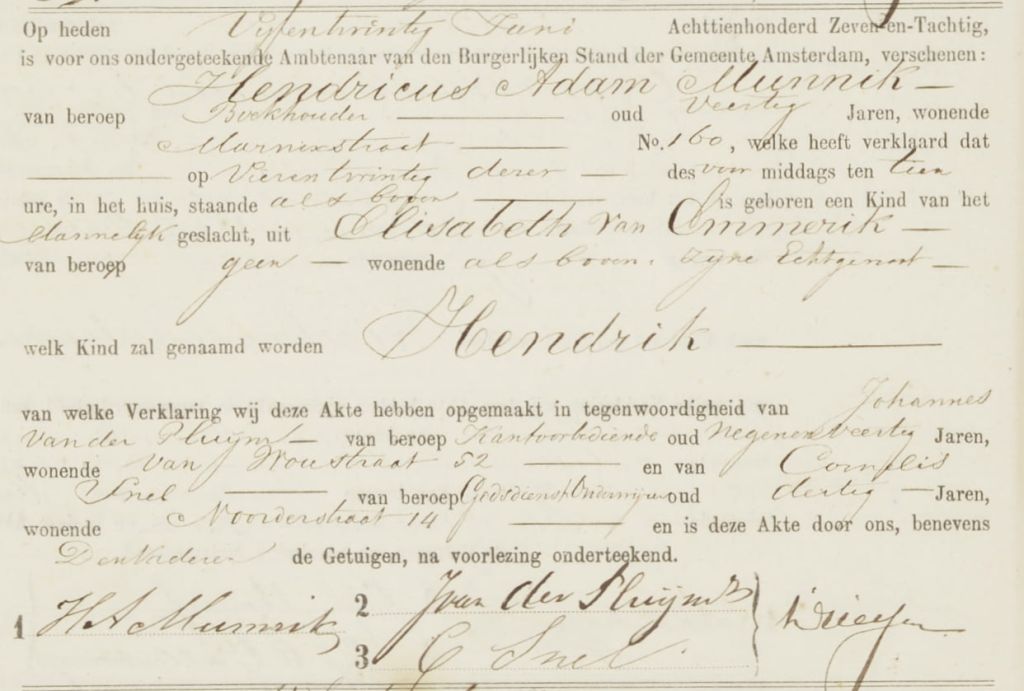 Op heden Vijfentwintig Juni Achttienhonderd Zeven-en-Tachtig,
is voor ons ondergeteekende Ambtenaar van den Burgerlijken Stand der Gemeente Amsterdam, verschenen:
Hendricus Adam Munnik —
van beroep Boekhouder — oud Veertig Jaren, wonende
Marnixstraat — No. 160, welke heeft verklaard dat
— op Vierentwintig dezer — des voor middags ten tien
ure, in het huis, staande als boven — is geboren een Kind van het
Mannelijk geslacht, uit Elisabeth van Emmerik —
van beroep geen — wonende als boven. zijne Echtgenoot —
welk Kind zal genaamd worden Hendrik —
van welke Verklaring wij deze Akte hebben opgemaakt in tegenwoordigheid van Johannes
van der Pluym — van beroep Kantoorbediende oud Negenenveertig Jaren,
wonende van Woustraat 52 — en van Cornelis
Snel — van beroep Godsdienst Onderwijzer oud dertig — Jaren,
wonende Noorderstraat 14 — en is deze Akte door ons, benevens
Den Vader en de Getuigen, na voorlezing onderteekend.
1 H A Munnik 2 J van der Pluym
3 C Snel